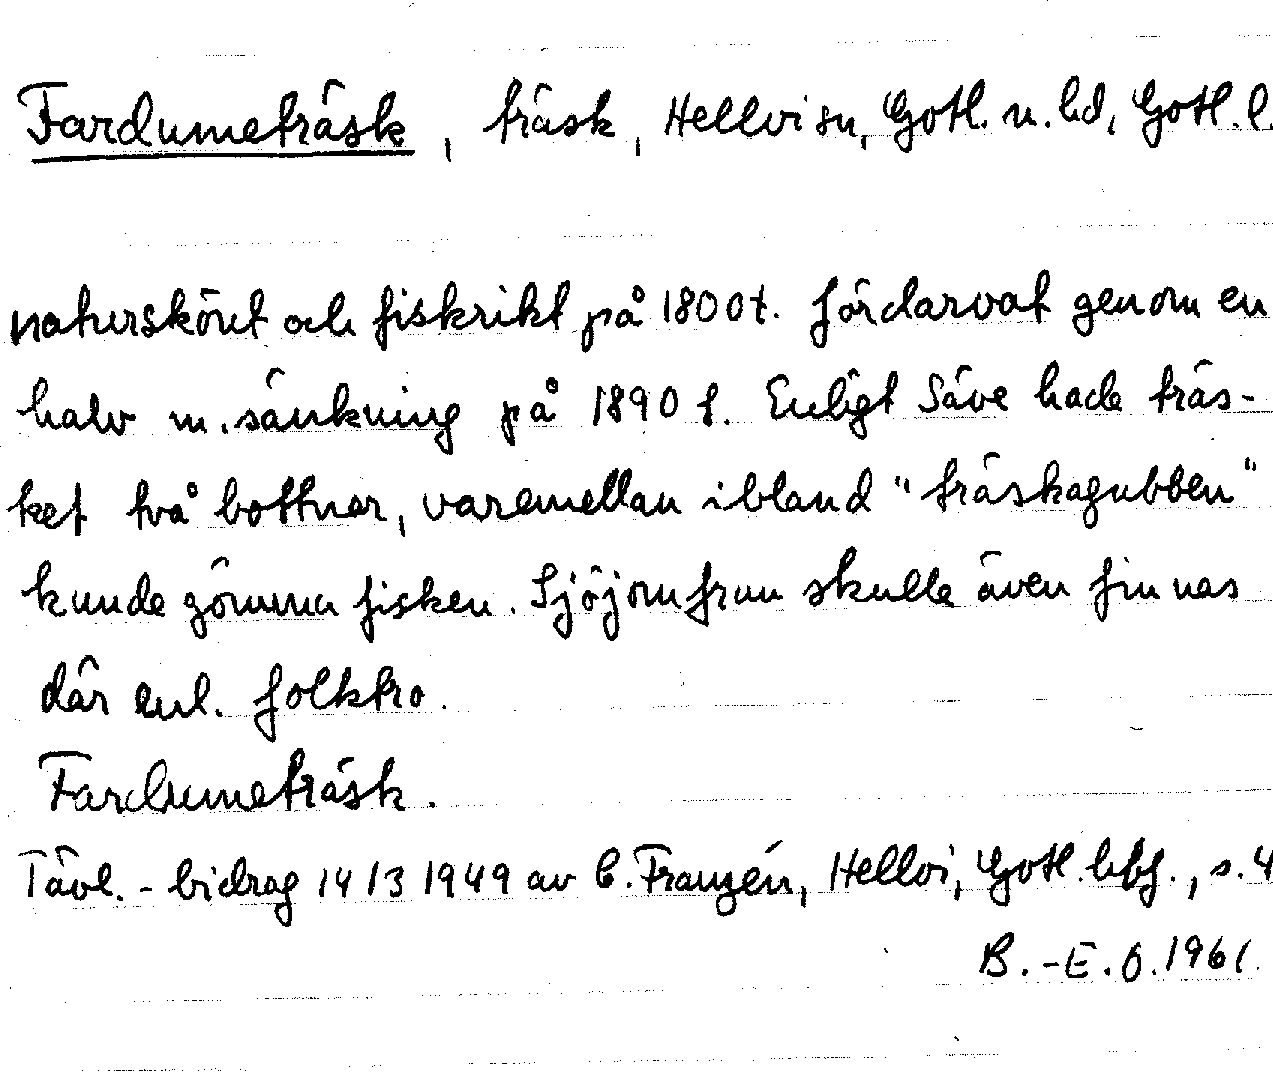 Fardumeträsk, träsk, Hellvi sn, Gotl. n. hd, Gotl. l
naturskönt och fiskrikt på 1800 t. fördärvat genom en
halv m. sänkning på 1890 t. Enligt Säve hade träs-
ket två bottnar, varemellan ibland "träskagubben"
kunde gömma fisken. Sjöjomfrun skulle även finnas
där enl. folktro.
Fardumeträsk.
Tävl. - bidrag 14/3 1949 av C. Franzén, Hellvi, Gotl. s. 4
B.-E. O. 1961